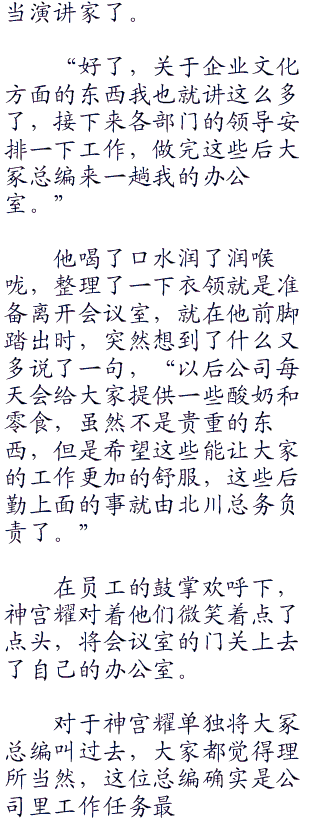 当演讲家了。
“好了，关于企业文化
方面的东西我也就讲这么多
了，接下来各部门的领导安
排一下工作，做完这些后大
冢总编来一趟我的办公
室。”
他喝了口水润了润喉
咙，整理了一下衣领就是准
备离开会议室，就在他前脚
踏出时，突然想到了什么又
多说了一句，“以后公司每
天会给大家提供一些酸奶和
零食，虽然不是贵重的东
西，但是希望这些能让大家
的工作更加的舒服，这些后
勤上面的事就由北川总务负
责了。”
在员工的鼓掌欢呼下，
神宫耀对着他们微笑着点了
点头，将会议室的门关上去
了自己的办公室。
对于神宫耀单独将大冢
总编叫过去，大家都觉得理
所当然，这位总编确实是公
司里工作任务最